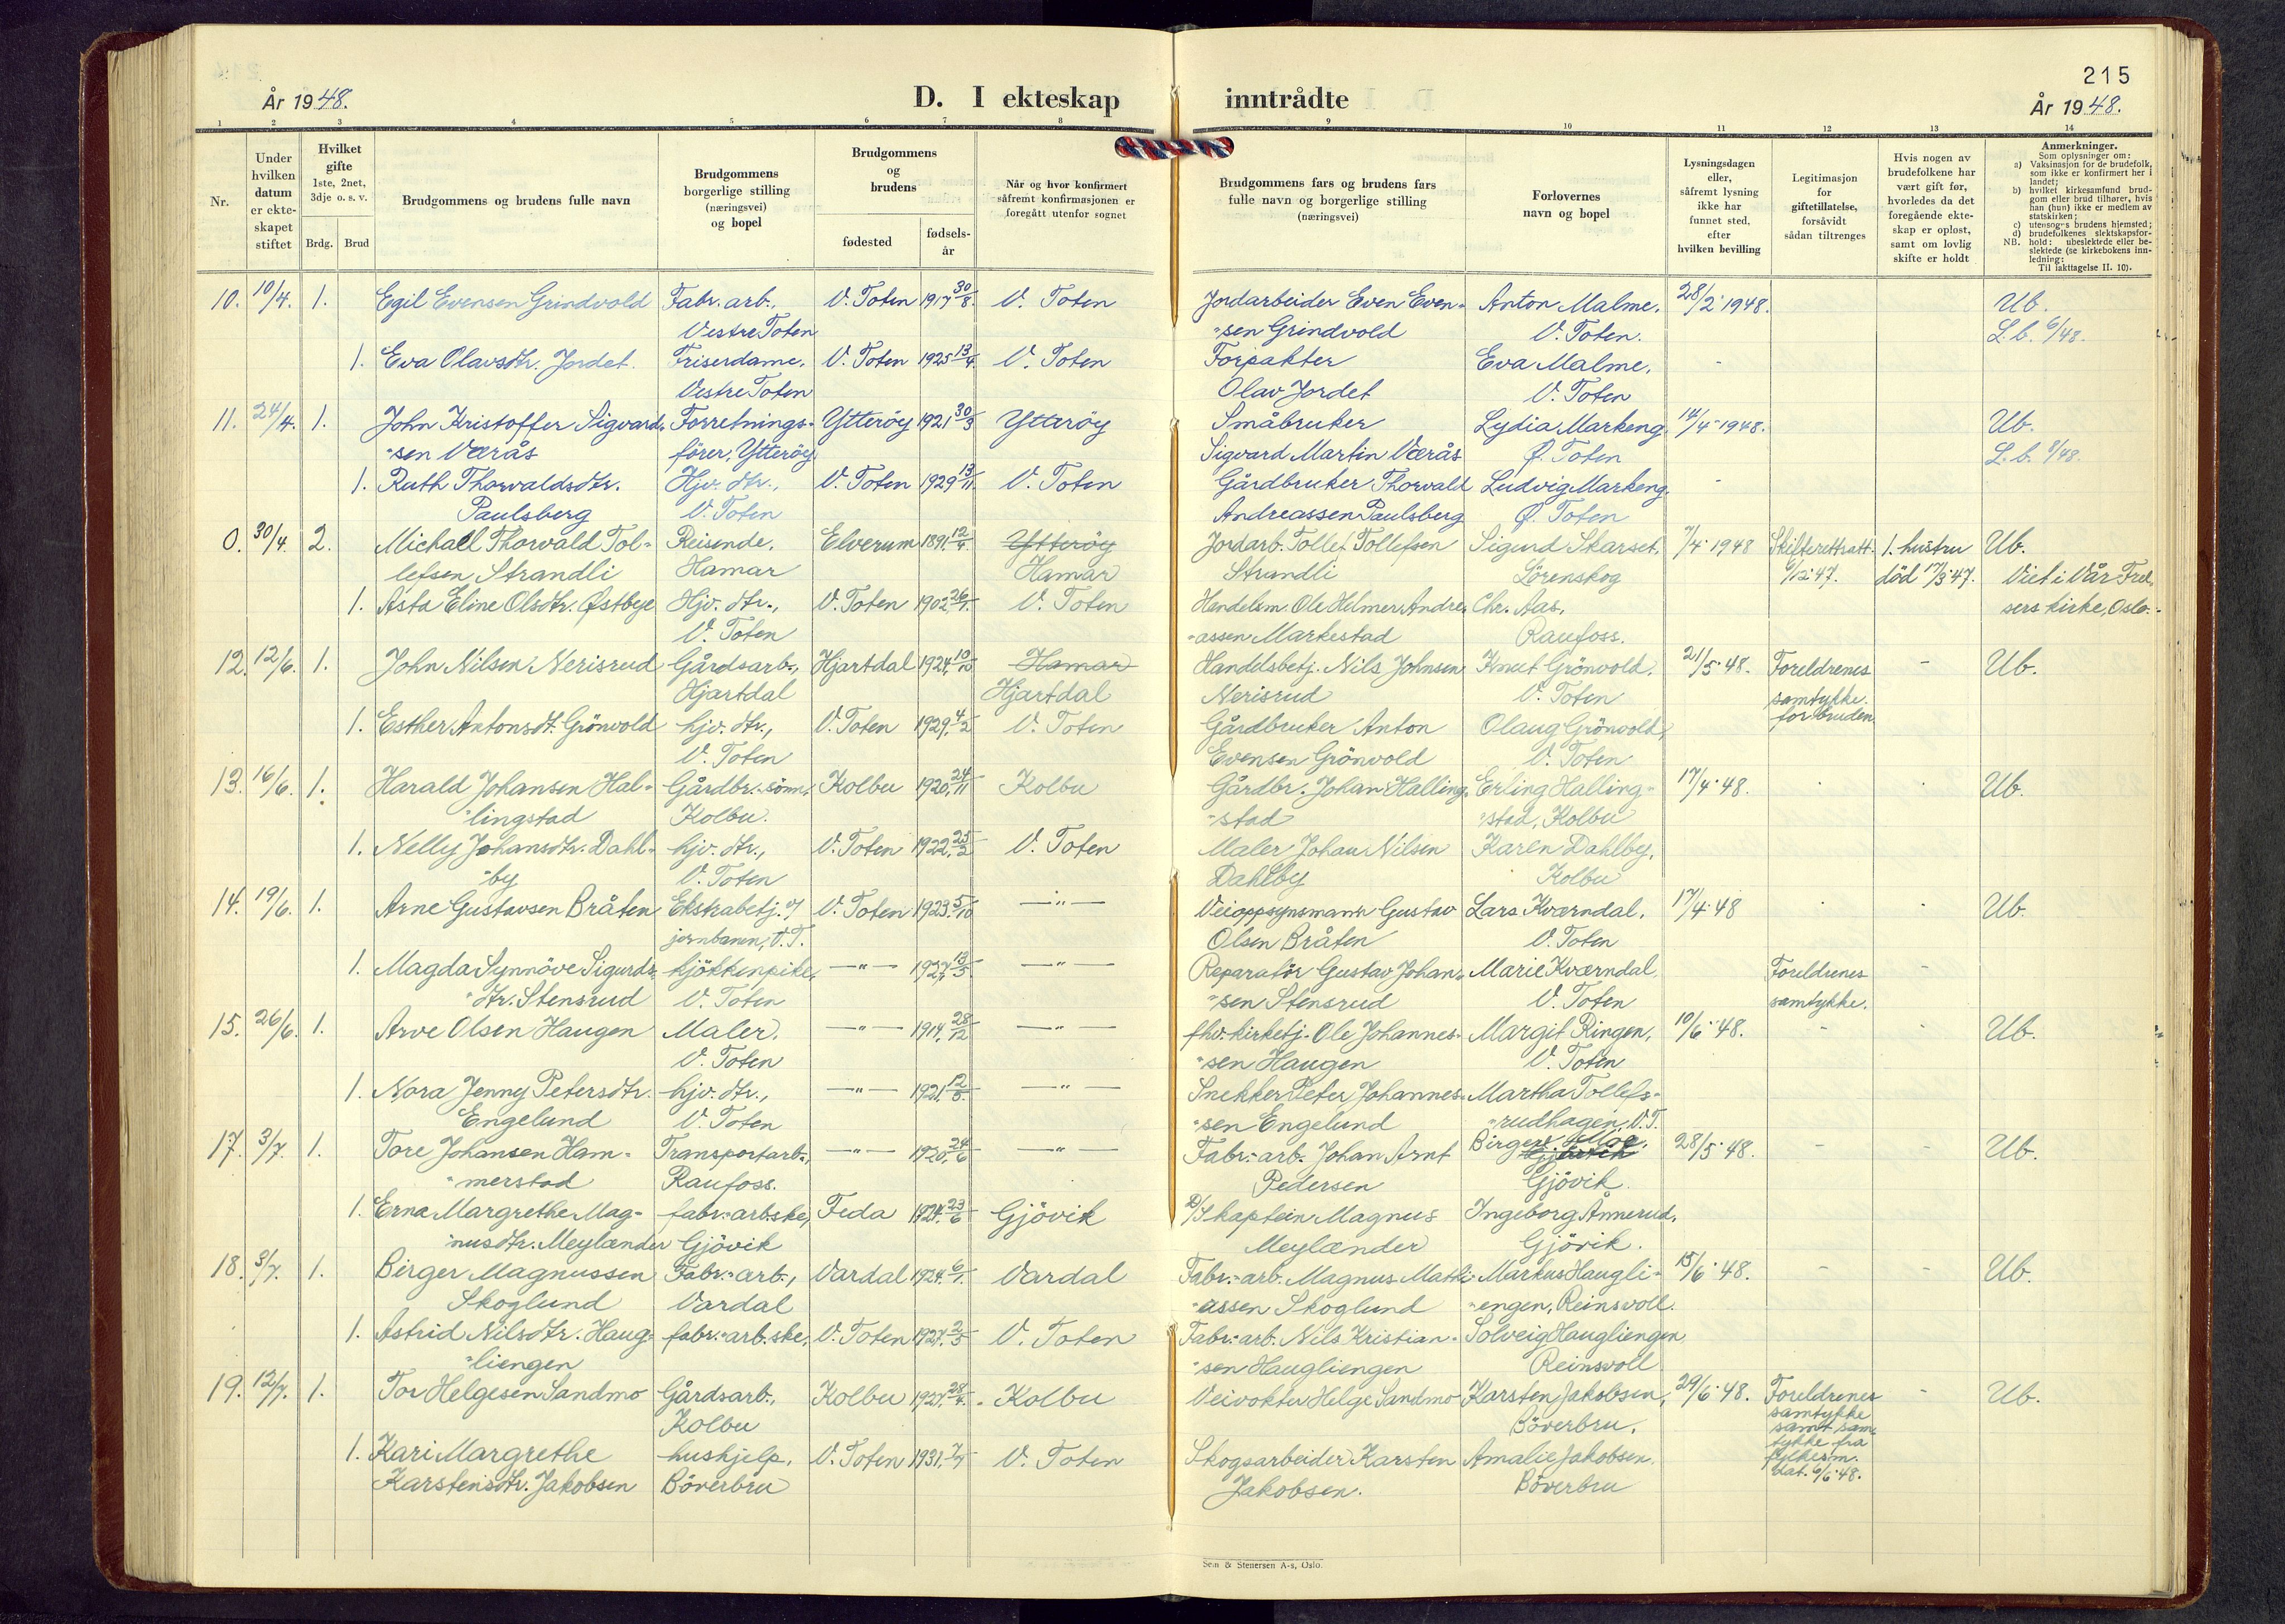 215
År 1948.
D. I ekteskap
inntrådte
År 1948.
1 2 3 4 5 6 7 8 9 10 11 12 13 14
Nr.
Under hvilken datum er ekteskapet stiftet
Hvilket gifte 1ste, 2net, 3dje o. s. v.
Brdg. Brud
Brudgommens og brudens fulle navn
Brudgommens borgerlige stilling (næringsvei) og bopel
Brudgommens og brudens
fødested
fødselsår
Når og hvor konfirmert såfremt konfirmasjonen er foregått utenfor sognet
Brudgommens fars og brudens fars fulle navn og borgerlige stilling (næringsvei)
Forlovernes navn og bopel
Lysningsdagen eller, såfremt lysning ikke har funnet sted, efter hvilken bevilling
Legitimasjon for giftetillatelse, forsåvidt sådan tiltrenges
Hvis nogen av brudefolkene har vært gift før, hvorledes da det foregående ekteskap er opløst, samt om lovlig skifte er holdt
Anmerkninger.
Som oplysninger om:
a) Vaksinasjon for de brudefolk, som ikke er konfirmert her i landet;
b) hvilket kirkesamfund brudgom eller brud tilhører, hvis han (hun) ikke er medlem av statskirken;
c) utensogns brudens hjemsted;
d) brudefolkenes slektskapsforhold: ubeslektede eller beslektede (se kirkebokens innledning:
NB.
Til iakttagelse II. 10).
10. 10/4. 1. Egil Evensen Grindvold Fabr. arb., V. Toten 1917 30/8. V. Toten Jordarbeider Even Even- Anton Malme. 28/2 1948. Ub.
Vestre Toten "sen Grindvold V. Toten. L. b. 6/48.
1. Eva Olavsdtr. Jordet. Friserdame. V. Toten 1925 13/4. V. Toten Forpakter Eva Malme. -
Vestre Toten Olav Jordet V. Toten
11. 24/4. 1. John Kristoffer Sigvard- Forretnings- Ytterøy 1921 30/3 Ytterøy Småbruker Lydia Markeng 14/4 1948. Ub.
"sen Værås fører, Ytterøy Sigvard Martin Værås Ø. Toten L. b. 8/48.
1. Ruth Thorvaldsdtr. Hjv. dtr., V. Toten 1929 13/11. V. Toten Gårdbruker Thorvald Ludvig Markeng. -
Paulsberg V. Toten Andreassen Paulsberg Ø. Toten
0. 30/4. 2. Michael Thorvald Tol- Reisende. Elverum 1891. 12/4. Ytterøy Jordarb. Tollef Tollefsen Sigurd Skarset. 7/4 1948 Skifterettsatt. 1. hustru Ub.
lefsen Strandli Hamar Hamar Strandli Lørenskog 6/12 47. død 17/3 47. Viet i Vår Frel-
1. Asta Eline Olsdtr. Østbye Hjv. dtr., V. Toten 1902. 26/1. V. Toten Handelsm. Ole Helmer Andre- Chr. Aas, sers kirke, Oslo.
V. Toten "assen Markestad Raufoss.
12. 12/6. 1. John Nilsen Nerisrud Gårdsarb., Hjartdal 1924. 10/10 Hamar Handelsbetj. Nils Johnsen Knut Grönvold. 21/5 48. Foreldrenes - Ub.
Hjartdal Hjartdal Nerisrud V. Toten samtykke.
1. Esther Antonsdt. Grönvold hjv. dtr., V. Toten 1929. 4/2 V. Toten Gårdbruker Anton Olaug Grönvold, for bruden
V. Toten Evensen Grönvold V. Toten
13. 16/6. 1. Harald Johansen Hal- Gårdbr.-sönn, Kolbu 1920. 24/11 Kolbu Gårdbr. Johan Halling- Erling Halling- 17/4 48. Ub.
"lingstad Kolbu. "stad "stad, Kolbu
1. Nelly Johansdtr. Dahl- hjv. dtr., V. Toten 1922. 25/2 V. Toten Maler Johan Nilsen Karen Dahlby,
"by V. Toten Dahlby Kolbu
14. 19/6. 1. Arne Gustavsen Bråten Ekstrabetj. v/ V. Toten 1923. 5/10 —"— Veioppsynsmann Gustav Lars Kværndal. 17/4 48 Ub.
jernbanen, V.T. Olsen Bråten V. Toten
1. Magda Synnöve Sigurds- kjökkenpike, —"— 1927. 13/5. —"— Reparatör Gustav Johan- Marie Kværndal. Foreldrenes -
"dtr. Stensrud V. Toten "sen Stensrud V. Toten samtykke.
15. 26/6. 1. Arve Olsen Haugen Maler. —"— 1914. 28/12 —"— fhv. kirketj. Ole Johannes- Margit Ringen, 10/6 48. - - Ub.
V. Toten "sen Haugen V. Toten
1. Nora Jenny Petersdtr. hjv. dtr., —"— 1921 12/8. —"— Snekker Peter Johannes- Martha Tollefs-
Engelund V. Toten "sen Engelund "rudhagen, V.T.
17. 3/7. 1. Tore Johansen Ham- Transportarb., —"— 1920. 24/6 —"— Fabr.-arb. Johan Arnt Birger Moe. 28/5 48. - - Ub.
"merstad Raufoss. Pedersen Gjövik.
1. Erna Margrethe Mag- fabr.-arb.ske, Feda 1924. 23/6 Gjövik D/S kaptein Magnus Ingeborg Ånnerud.
"nusdtr. Meylænder Gjövik Meylænder Gjövik.
18. 3/7. 1. Birger Magnussen Fabr.-arb., Vardal 1924. 6/1. Vardal Fabr.-arb. Magnus Mathi- Markus Haugli- 15/6 48. - - Ub.
Skoglund Vardal "assen Skoglund "engen, Reinsvoll.
1. Astrid Nilsdtr. Haug- fabr.-arb.ske, V. Toten 1927. 2/5 V. Toten Fabr.-arb. Nils Kristian- Solveig Haugliengen
"liengen "sen Haugliengen Reinsvoll
19. 12/7. 1. Tor Helgesen Sandmo Gårdsarb., Kolbu 1927. 28/4. Kolbu Veivokter Helge Sandmo Karsten Jakobsen, 29/6 48. Foreldrenes - Ub.
Kolbu Böverbru. samtykke
samt sam-
tykke fra
1. Kari Margrethe huskjelp. V. Toten 1931. 7/7 V. Toten Skogsarbeider Karsten Amalie Jakobsen. fylkesm.
dat. 6/6 48.
Karstensdtr. Jakobsen Böverbru Jakobsen. Böverbru
Sem & Stenersen A-s, Oslo.